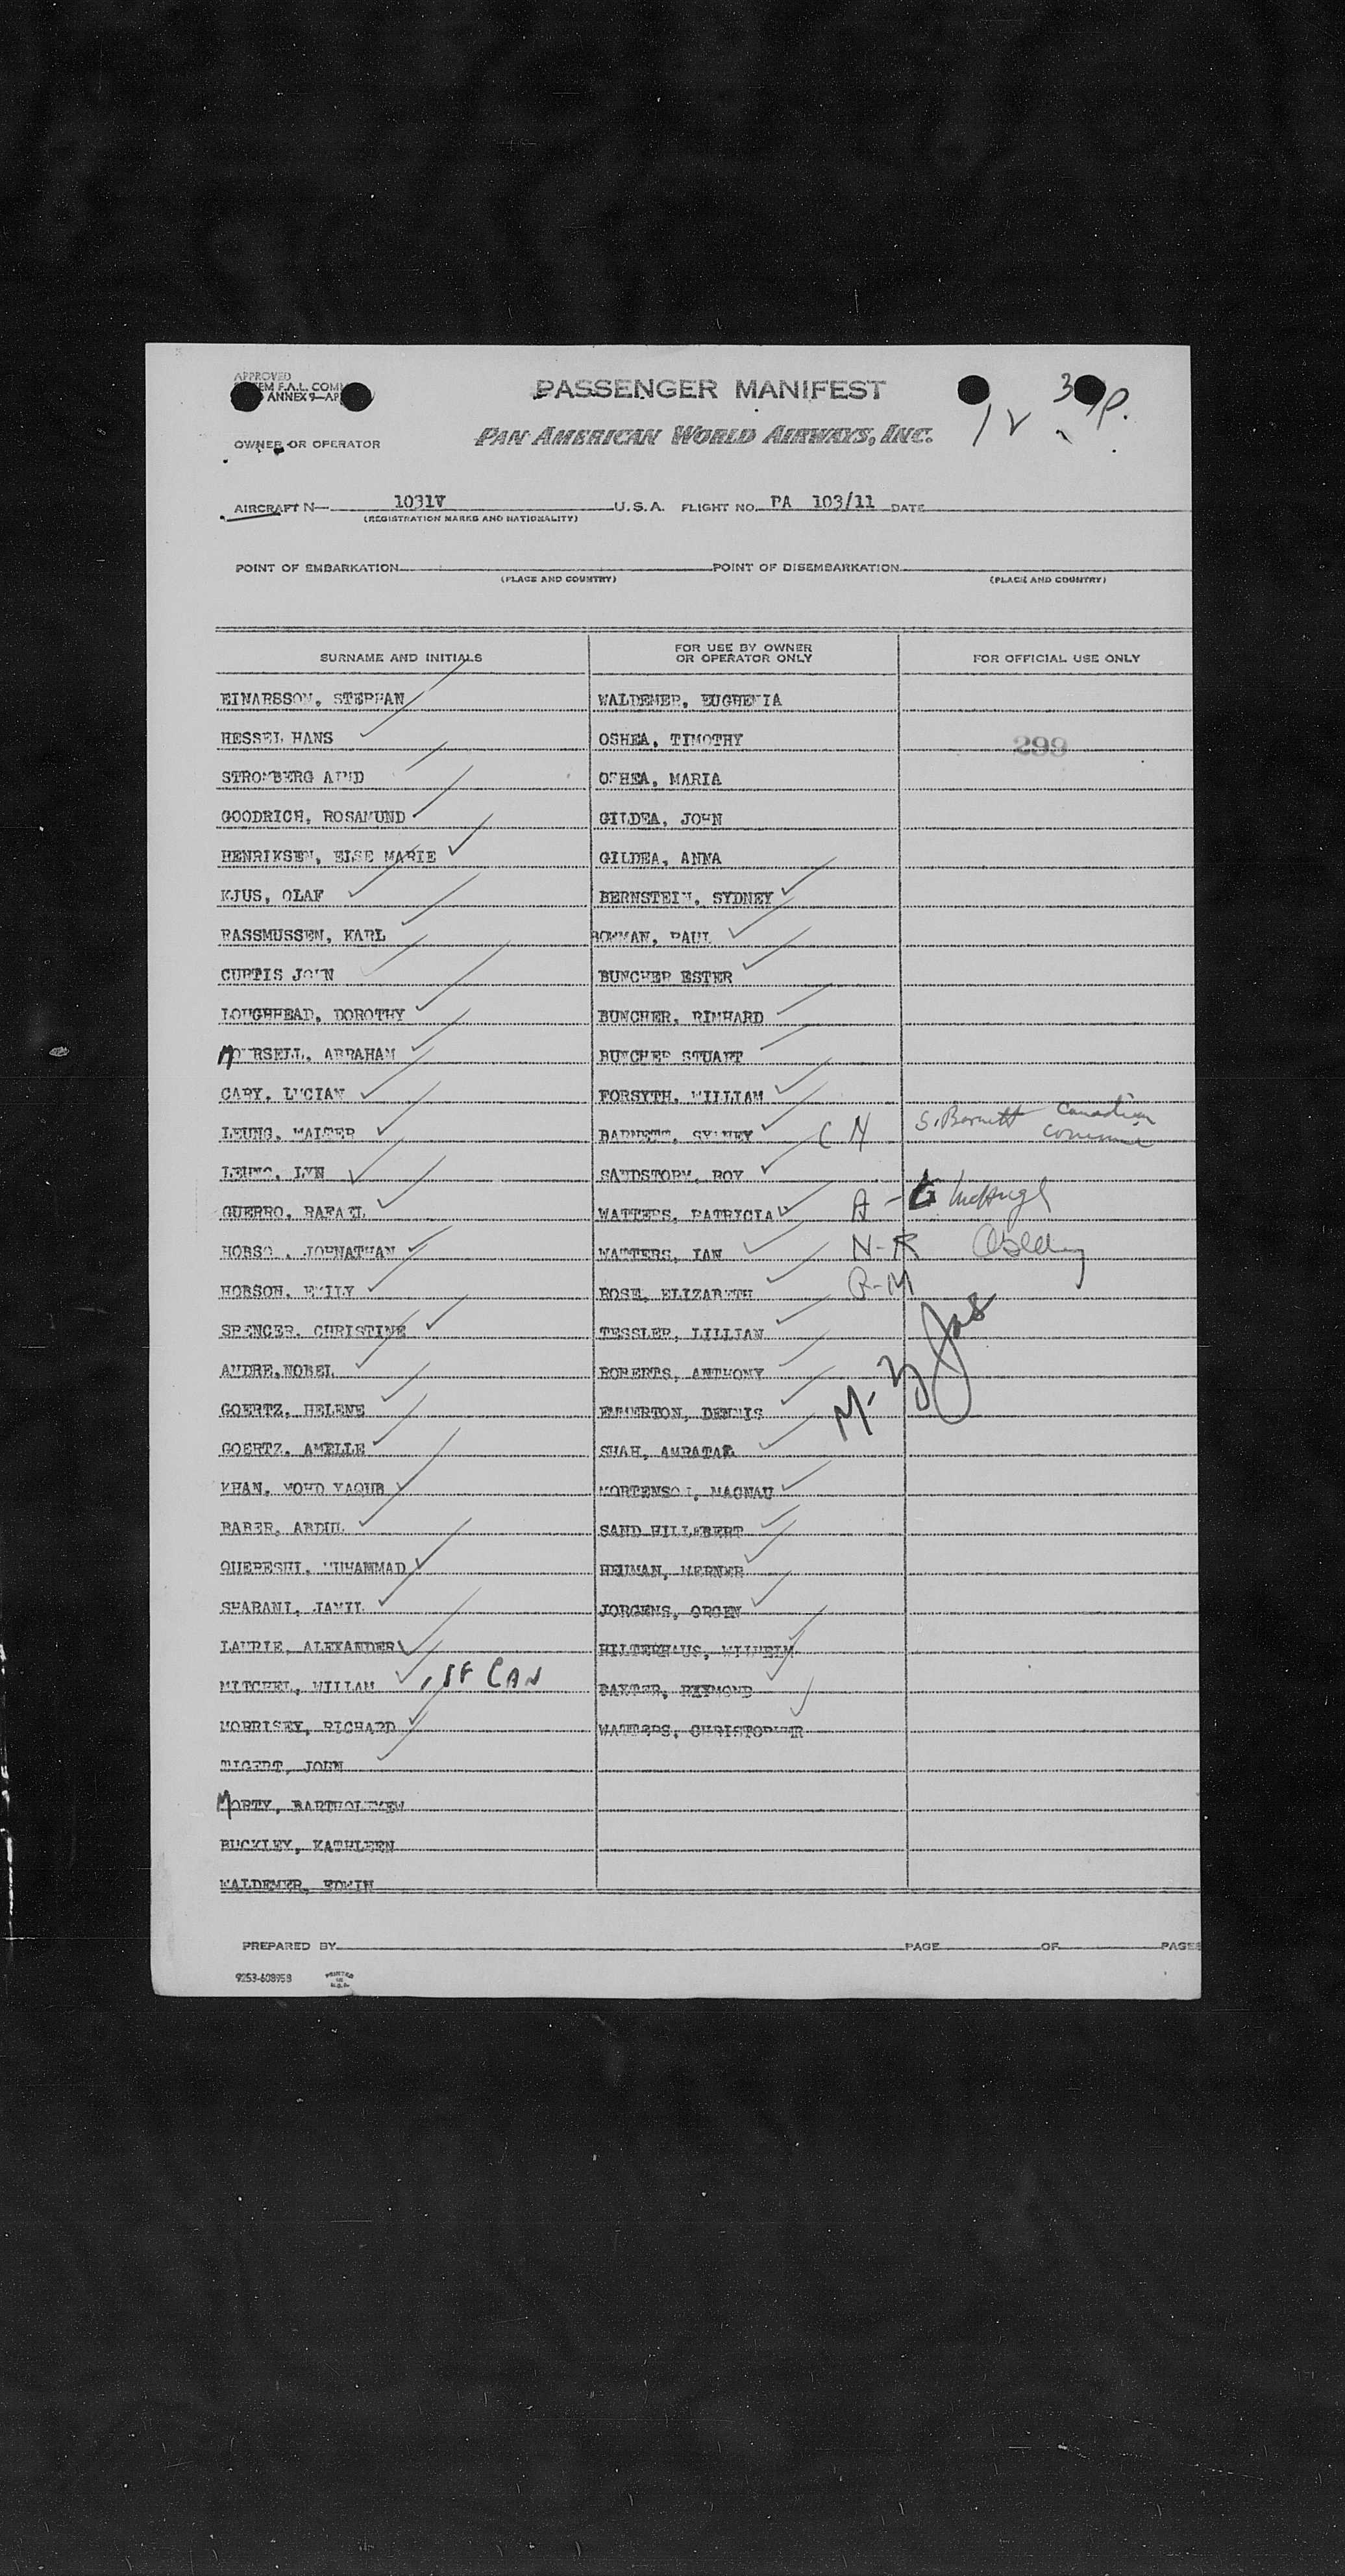 APPROVED
PASSENGER MANIFEST
ANNEX 9
PAN AMERICAN WORLD AIRWAYS, INC.
OWNER OR OPERATOR
AIRCRAFT N— 1031V U.S.A. FLIGHT NO. PA 103/11 DATE
(REGISTRATION MARKS AND NATIONALITY)
POINT OF EMBARKATION POINT OF DISEMBARKATION
(PLACE AND COUNTRY) (PLACE AND COUNTRY)
SURNAME AND INITIALS FOR USE BY OWNER OR OPERATOR ONLY FOR OFFICIAL USE ONLY
EINARSSON, STEPHAN WALDEMER, EUGHENIA
HESSEL HANS OSHEA, TIMOTHY 299
STROMBERG OSHEA, MARIA
GOODRICH, ROSAMUND GILDEA, JOHN
HENRIKSEN, ELSE MARIE GILDEA, ANNA
KJUS, OLAF BERNSTEIN, SYDNEY
RASSMUSSEN, KARL BOWMAN, PAUL
CURTIS JOHN BUNCHER ESTER
LOUGHHEAD, DOROTHY BUNCHER, RINHARD
ABRAHAM BUNCHER STUART
CARY, LUCIAN FORSYTH, WILLIAM
LEUNG, WALTER BARNETT, SYDNEY C N S. Barnett Canadian
LEUNG, LYN SANDSTORM, ROY
GUERRO, RAFAEL WATTERS, PATRICIA A - G
HOBSON, JOHNATHAN WATTERS, IAN N-R
HOBSON, EMILY ROSE, ELIZABETH R-M
SPENCER, CHRISTINE TESSLER, LILLIAN
ANDRE, NOBEL ROBERTS, ANTHONY
GOERTZ, HELENE EMMERTON, DENNIS
GOERTZ, AMELLE SHAH, AMRATAL
KHAN, MOHD YAQUB MORTENSON, MAGNAU
BABER, ABDUL SAND HILLEBERT
QUERESHI, MUHAMMAD HEUMAN, WERNER
SHARANI, JAMIL JORGENS, ORGEN
LAURIE, ALEXANDER HILTERHAUS, WILHELM
MITCHEL, WILLAM CAN BAXTER, RAYMOND
MORRISEY, RICHARD WATTERS, CHRISTOPHER
TIGERT, JOHN
MORTY, BARTHOLEMEW
BUCKLEY, KATHLEEN
WALDEMER, EDWIN
PREPARED BY PAGE OF PAGES
9253-608958 PRINTED IN U.S.A.